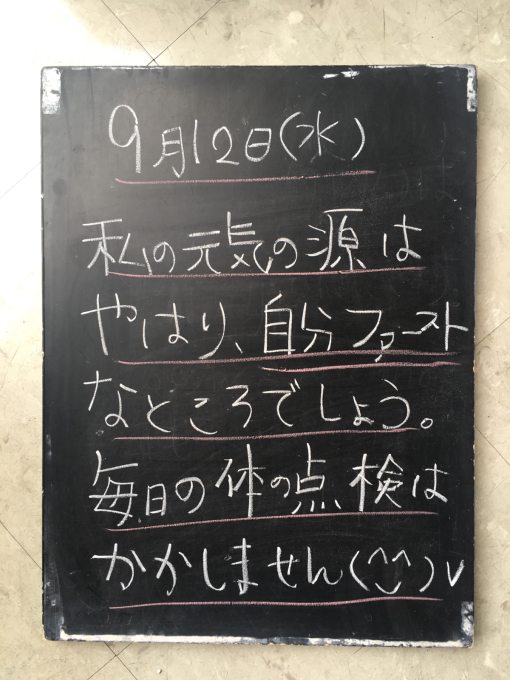 9月12日(水)
私の元気の源は
やはり、自分ファースト
なところでしょう。
毎日の体の点検は
かかしません(^‿^)v